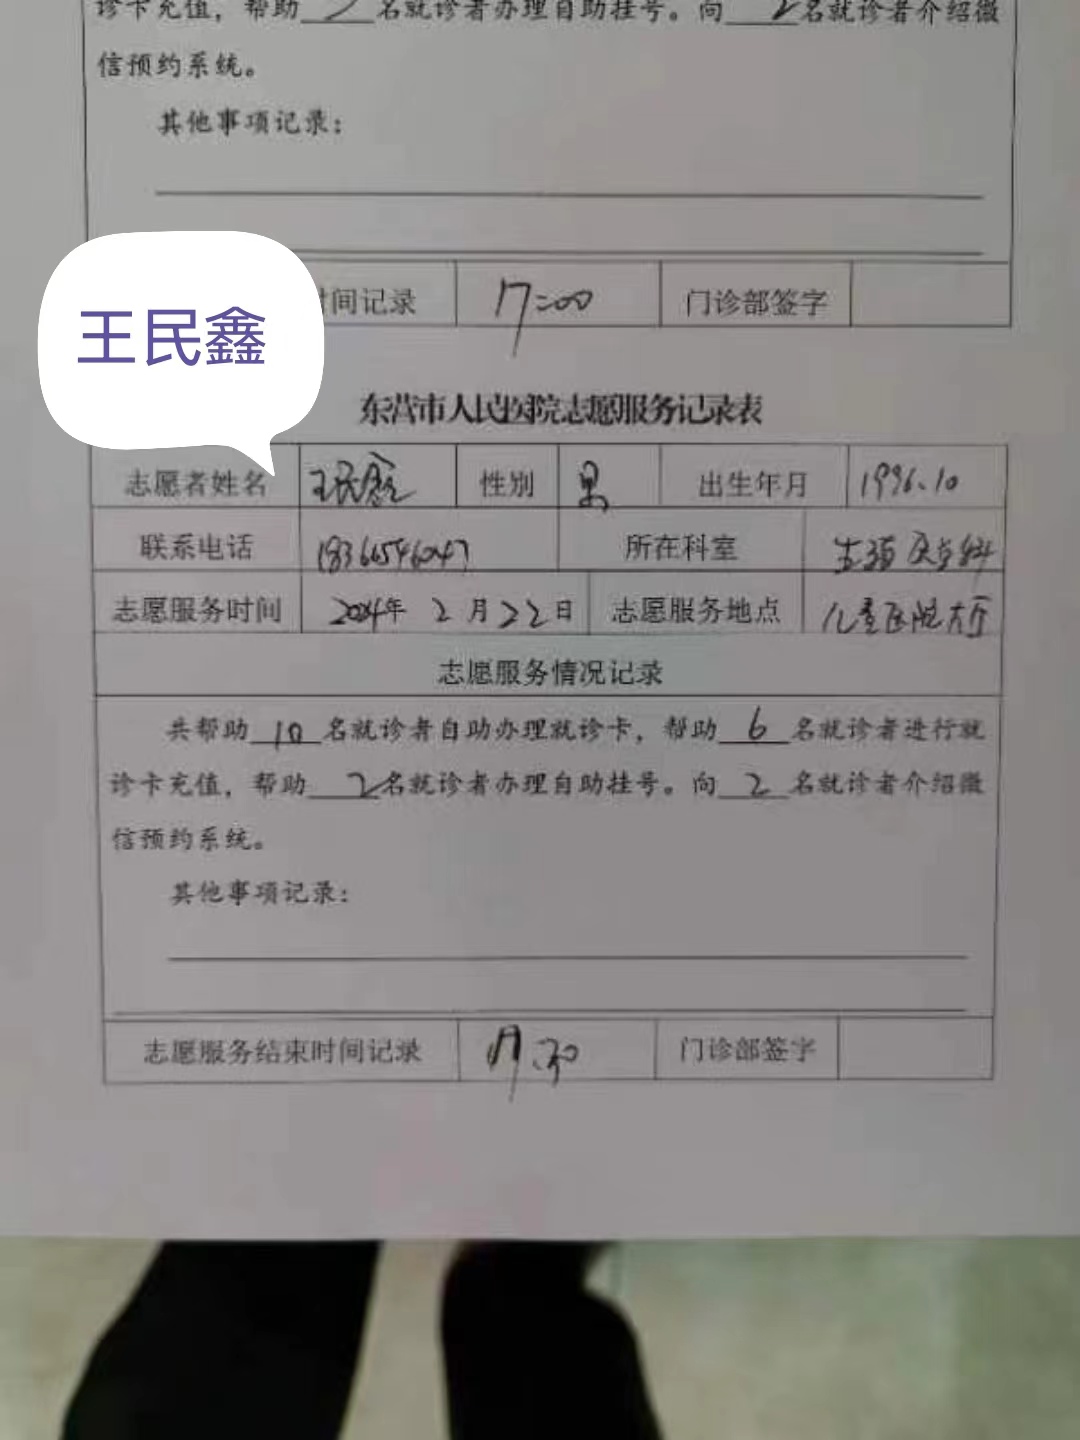 诊卡充值，帮助 2 名就诊者办理自助挂号。向 2 名就诊者介绍微
信预约系统。
其他事项记录：
时间记录 17:00 门诊部签字
王民鑫
东营市人民医院志愿服务记录表
志愿者姓名 王民鑫 性别 男 出生年月 1996.10
联系电话 18366546047 所在科室
志愿服务时间 2024年 2 月 22 日 志愿服务地点 儿童医院大厅
志愿服务情况记录
共帮助 10 名就诊者自助办理就诊卡，帮助 6 名就诊者进行就
诊卡充值，帮助 2 名就诊者办理自助挂号。向 2 名就诊者介绍微
信预约系统。
其他事项记录：
志愿服务结束时间记录 17.30 门诊部签字